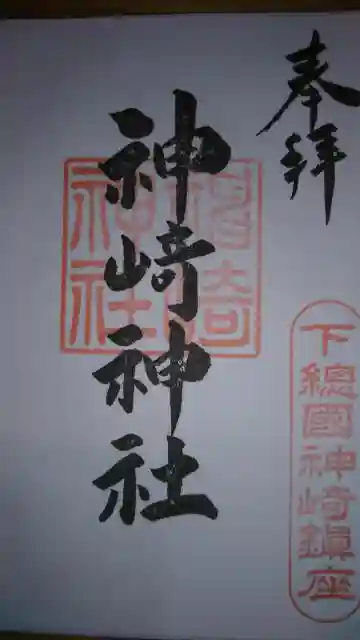 奉拝
下總國神崎鎮座
神崎神社
神崎
神社